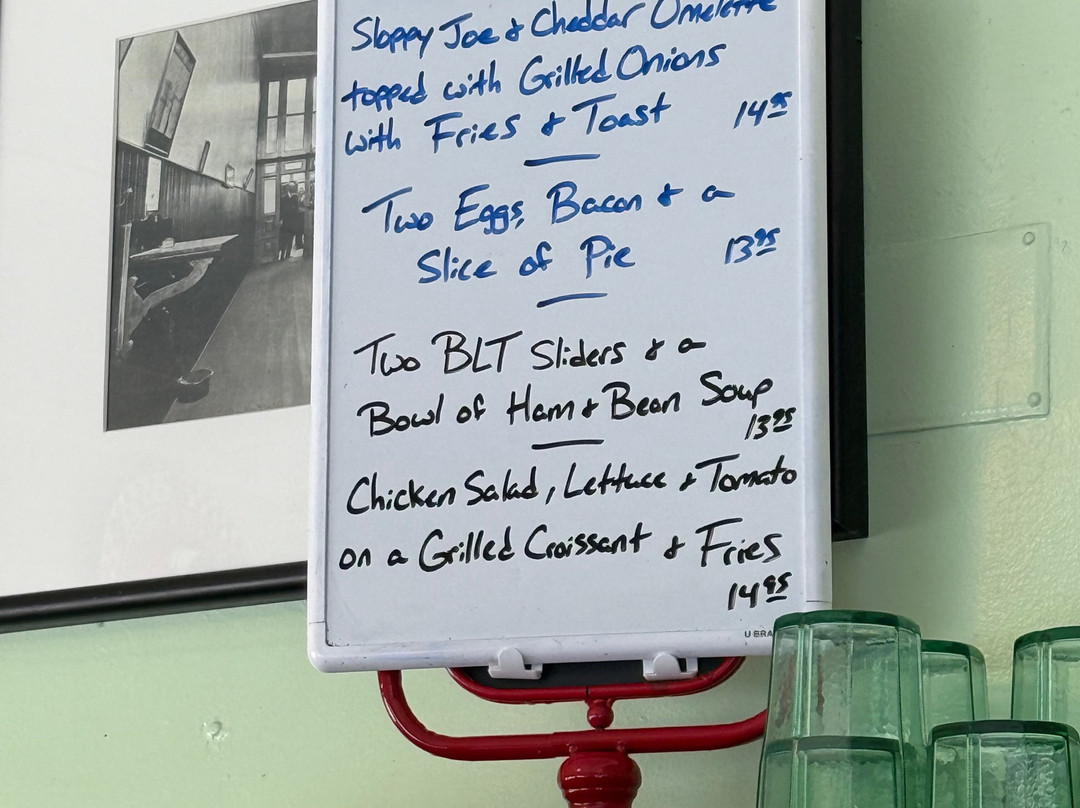 Sloppy Joe & Cheddar Omelette
topped with Grilled Onions
with Fries & Toast 14.95
Two Eggs, Bacon & a
Slice of Pie 13.95
Two BLT Sliders & a
Bowl of Ham & Bean Soup
13.95
Chicken Salad, Lettuce & Tomato
on a Grilled Croissant & Fries
14.95
U BRA